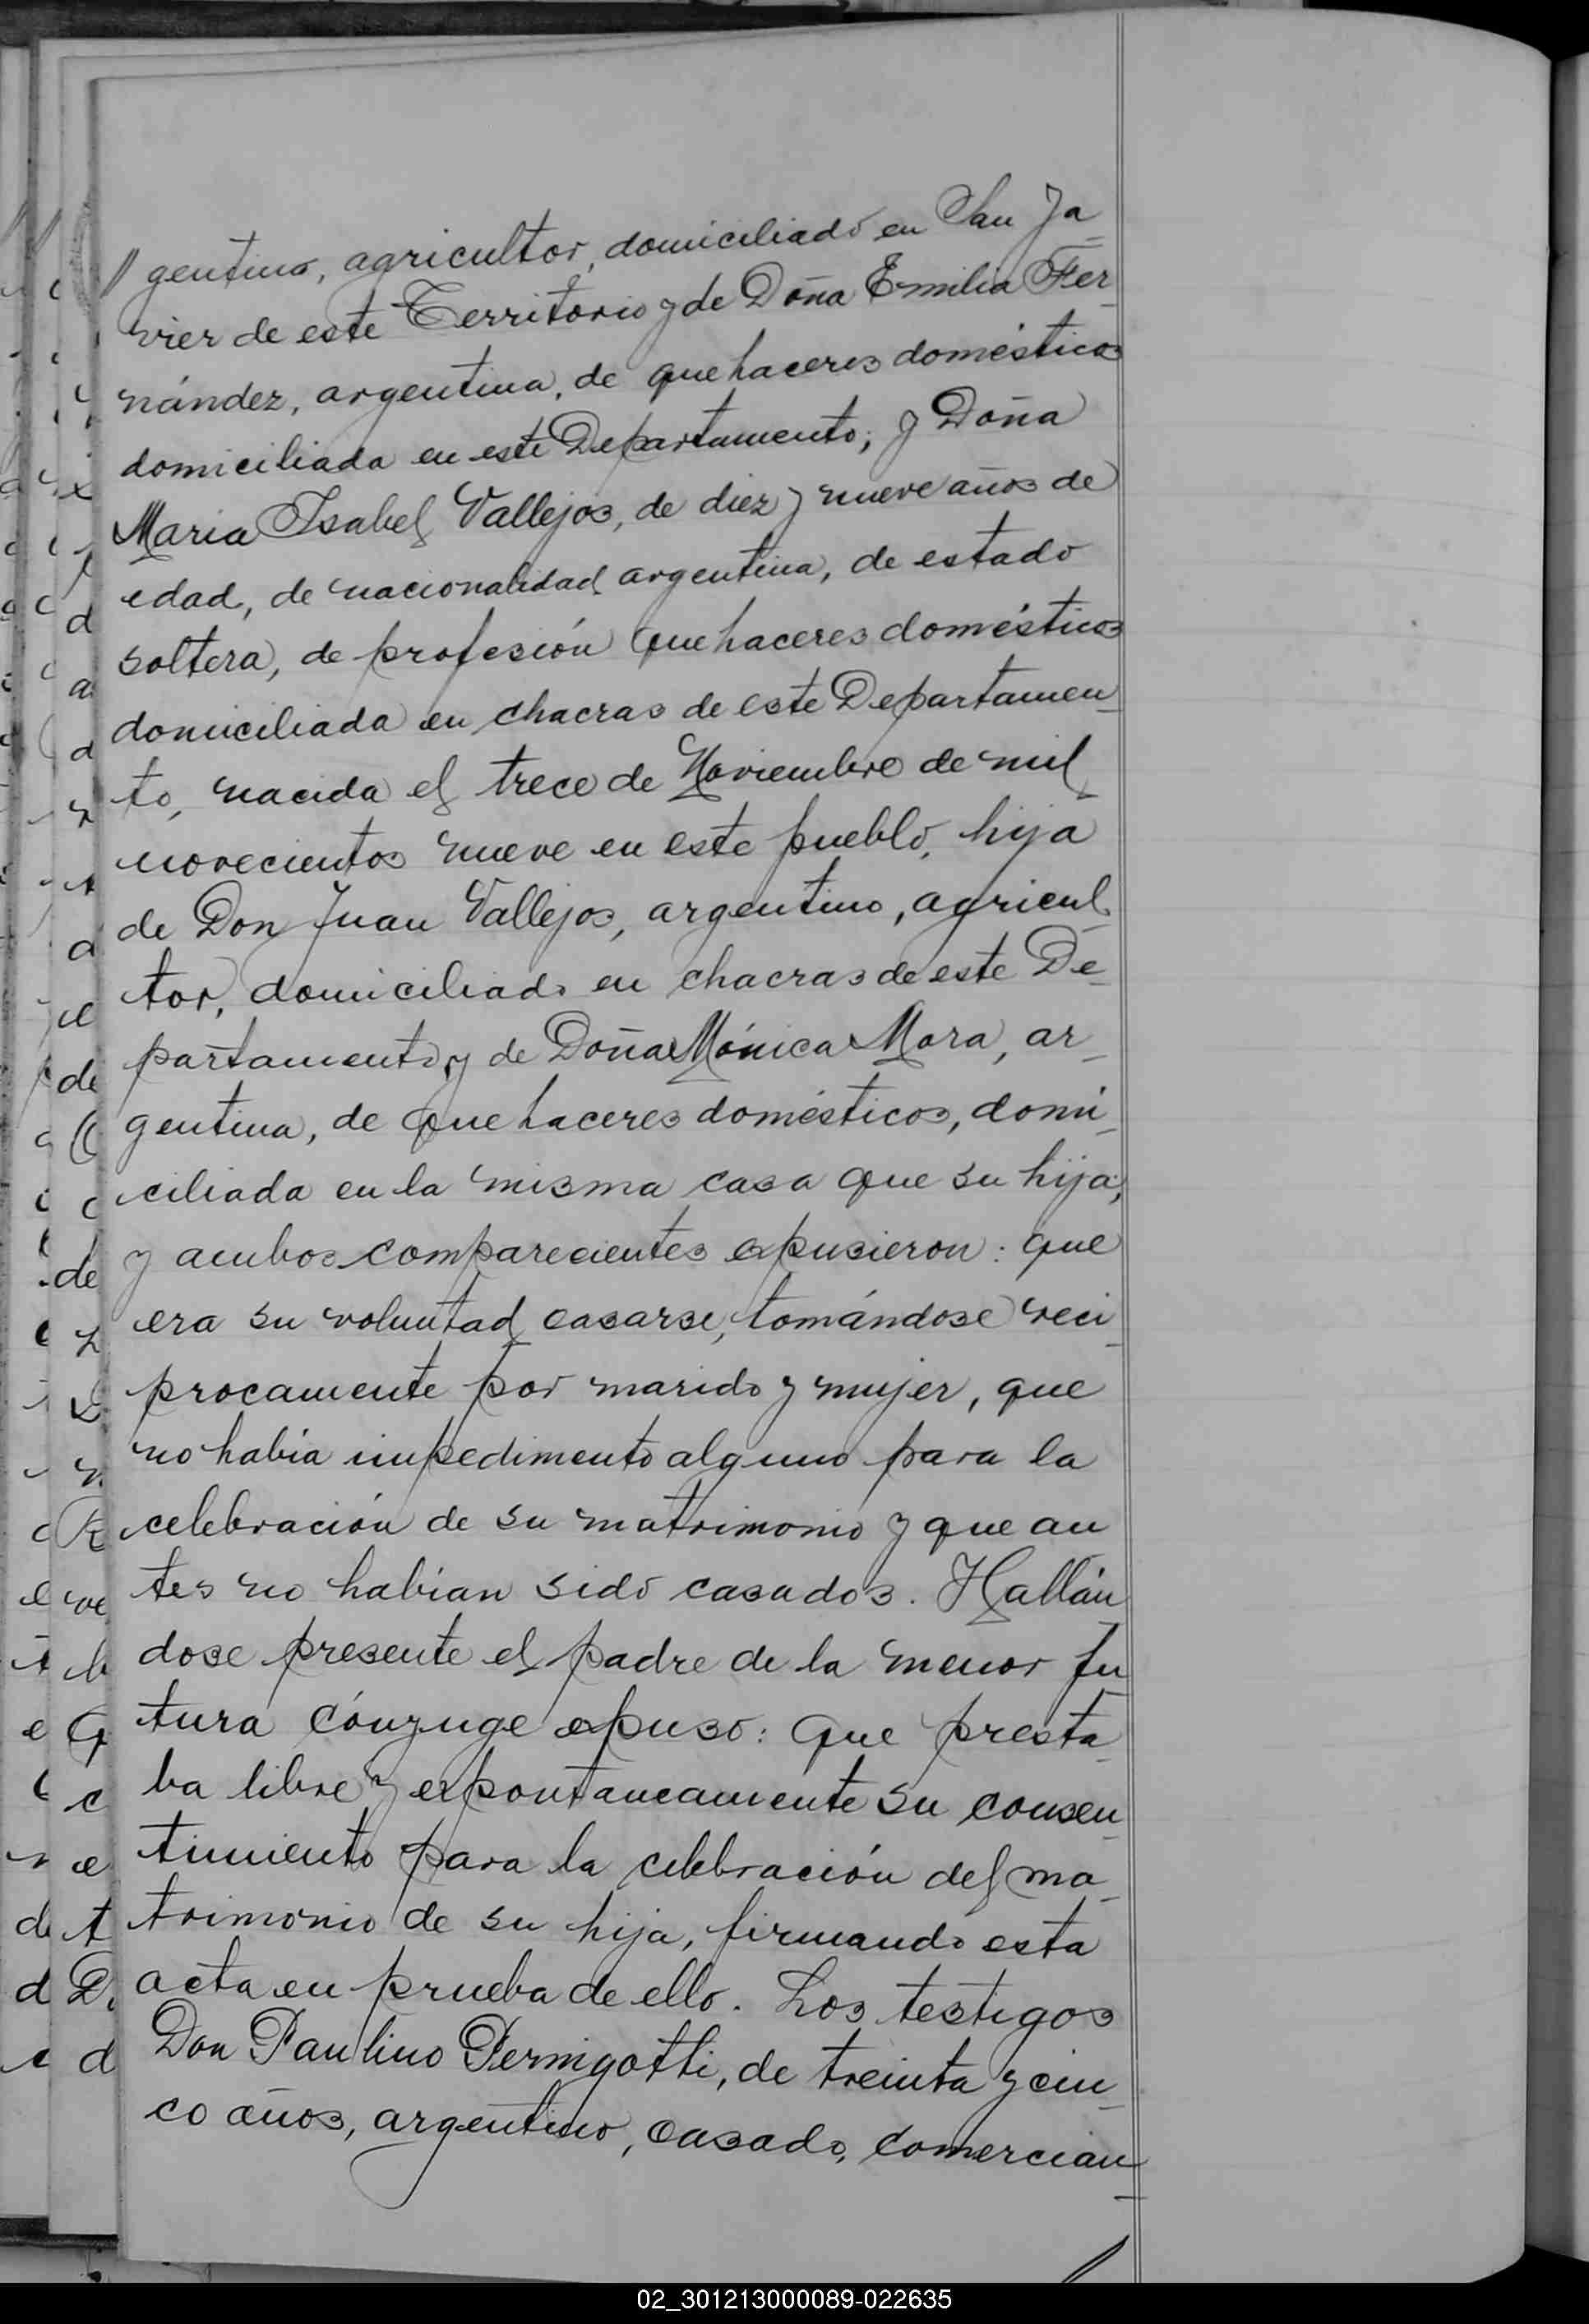 // gentino, agricultor, domiciliado en San Ja-
vier de este Territorio y de Doña Emilia Fer-
nández, argentina, de quehaceres domésticos
domiciliada en este Departamento; y Doña
Maria Isabel Vallejos, de diez y nueve años de
edad, de nacionalidad argentina, de estado
soltera, de profesión quehaceres domésticos
domiciliada en chacras de este Departamen-
to, nacida el trece de Noviembre de mil
novecientos nueve en este pueblo, hija
de Don Juan Vallejos, argentino, agricul-
tor, domiciliado en chacras de este De-
partamento, y de Doña Mónica Mora, ar-
gentina, de quehaceres domésticos, domi-
ciliada en la misma casa que su hija;
y ambos comparecientes expusieron: que
era su voluntad casarse, tomándose reci-
procamente por marido y mujer, que
no había impedimento alguno para la
celebración de su matrimonio y que an-
tes no habían sido casados. Hallán-
dose presente el padre de la menor fu-
tura cónyuge expuso: que presta-
ba libre y expontaneamente su consen-
timiento para la celebración del ma-
trimonio de su hija, firmando esta
acta en prueba de ello. Los testigos
Don Paulino Pernigotti, de treinta y cin-
co años, argentino, casado, comercian-
02_301213000089-022635